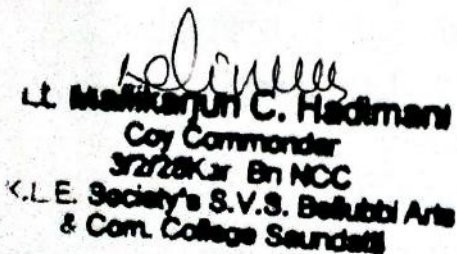 Lt. Mallikarjun C. Hadimani
Coy Commander
3/2/28Kar Bn NCC
K.L.E. Society's S.V.S. Bellubbi Arts
& Com. College Saundatti